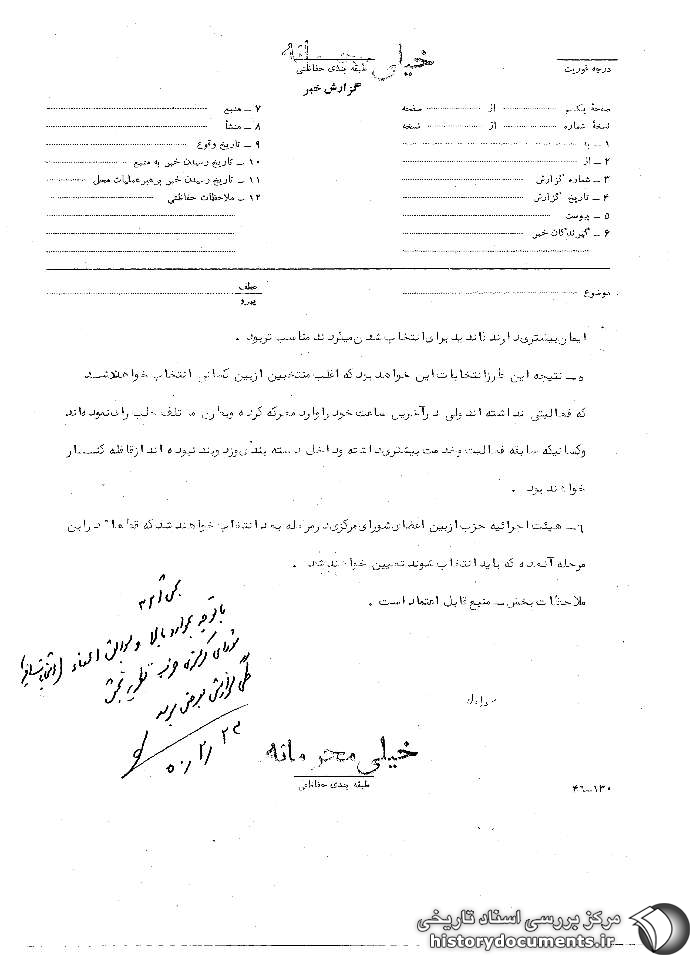 خیلی محرمانه
درجه فوریت
طبقه بندی حفاظتی
گزارش خبر
صفحهٔ یکم از صفحه
نسخهٔ شماره از نسخه
۱ – به
۲ – از
۳ – شماره گزارش
۴ – تاریخ گزارش
۵ – پیوست
۶ – گیرندگان خبر
۷ – منبع
۸ – منشأ
۹ – تاریخ وقوع
۱۰ – تاریخ رسیدن خبر به منبع
۱۱ – تاریخ رسیدن خبر برهبر عملیات محل
۱۲ – ملاحظات حفاظتی
موضوع
عطف
پیرو
ایمان بیشتری دارند کاندید برای انتخاب شدن میگردند مناسب تر بود .
۵ – نتیجه این طرز انتخابات این خواهد بود که اغلب منتخبین از بین کسانی انتخاب خواهند شد
که فعالیتی نداشته اند ولی در آخرین ساعت خود را وارد معرکه کرده و بطرق مختلف جلب رأی نموده اند
وکسانیکه سابقه فعالیت وخدمت بیشتری داشته و داخل دسته بندی و زد و بند نبوده اند از قافله کنار
خواهند بود .
۶ – هیئت اجرائیه حزب از بین اعضای شورای مرکزی در مرحله بعد انتخاب خواهند شد که قطعاً در این
مرحله آنعده که باید انتخاب شوند تعیین خواهند شد .
ملاحظات بخش – منبع قابل اعتماد است .
بخش ۳۲۱
با توجه بموارد بالا و سوابق اعضاء
شورای مرکزی حزب نظریه بخش
گزارش بعرض برسد
۵۰/۲/۲۳
خیلی محرمانه
طبقه بندی حفاظتی
۴۶–۱۳۰
مرکز بررسی اسناد تاریخی
historydocuments.ir